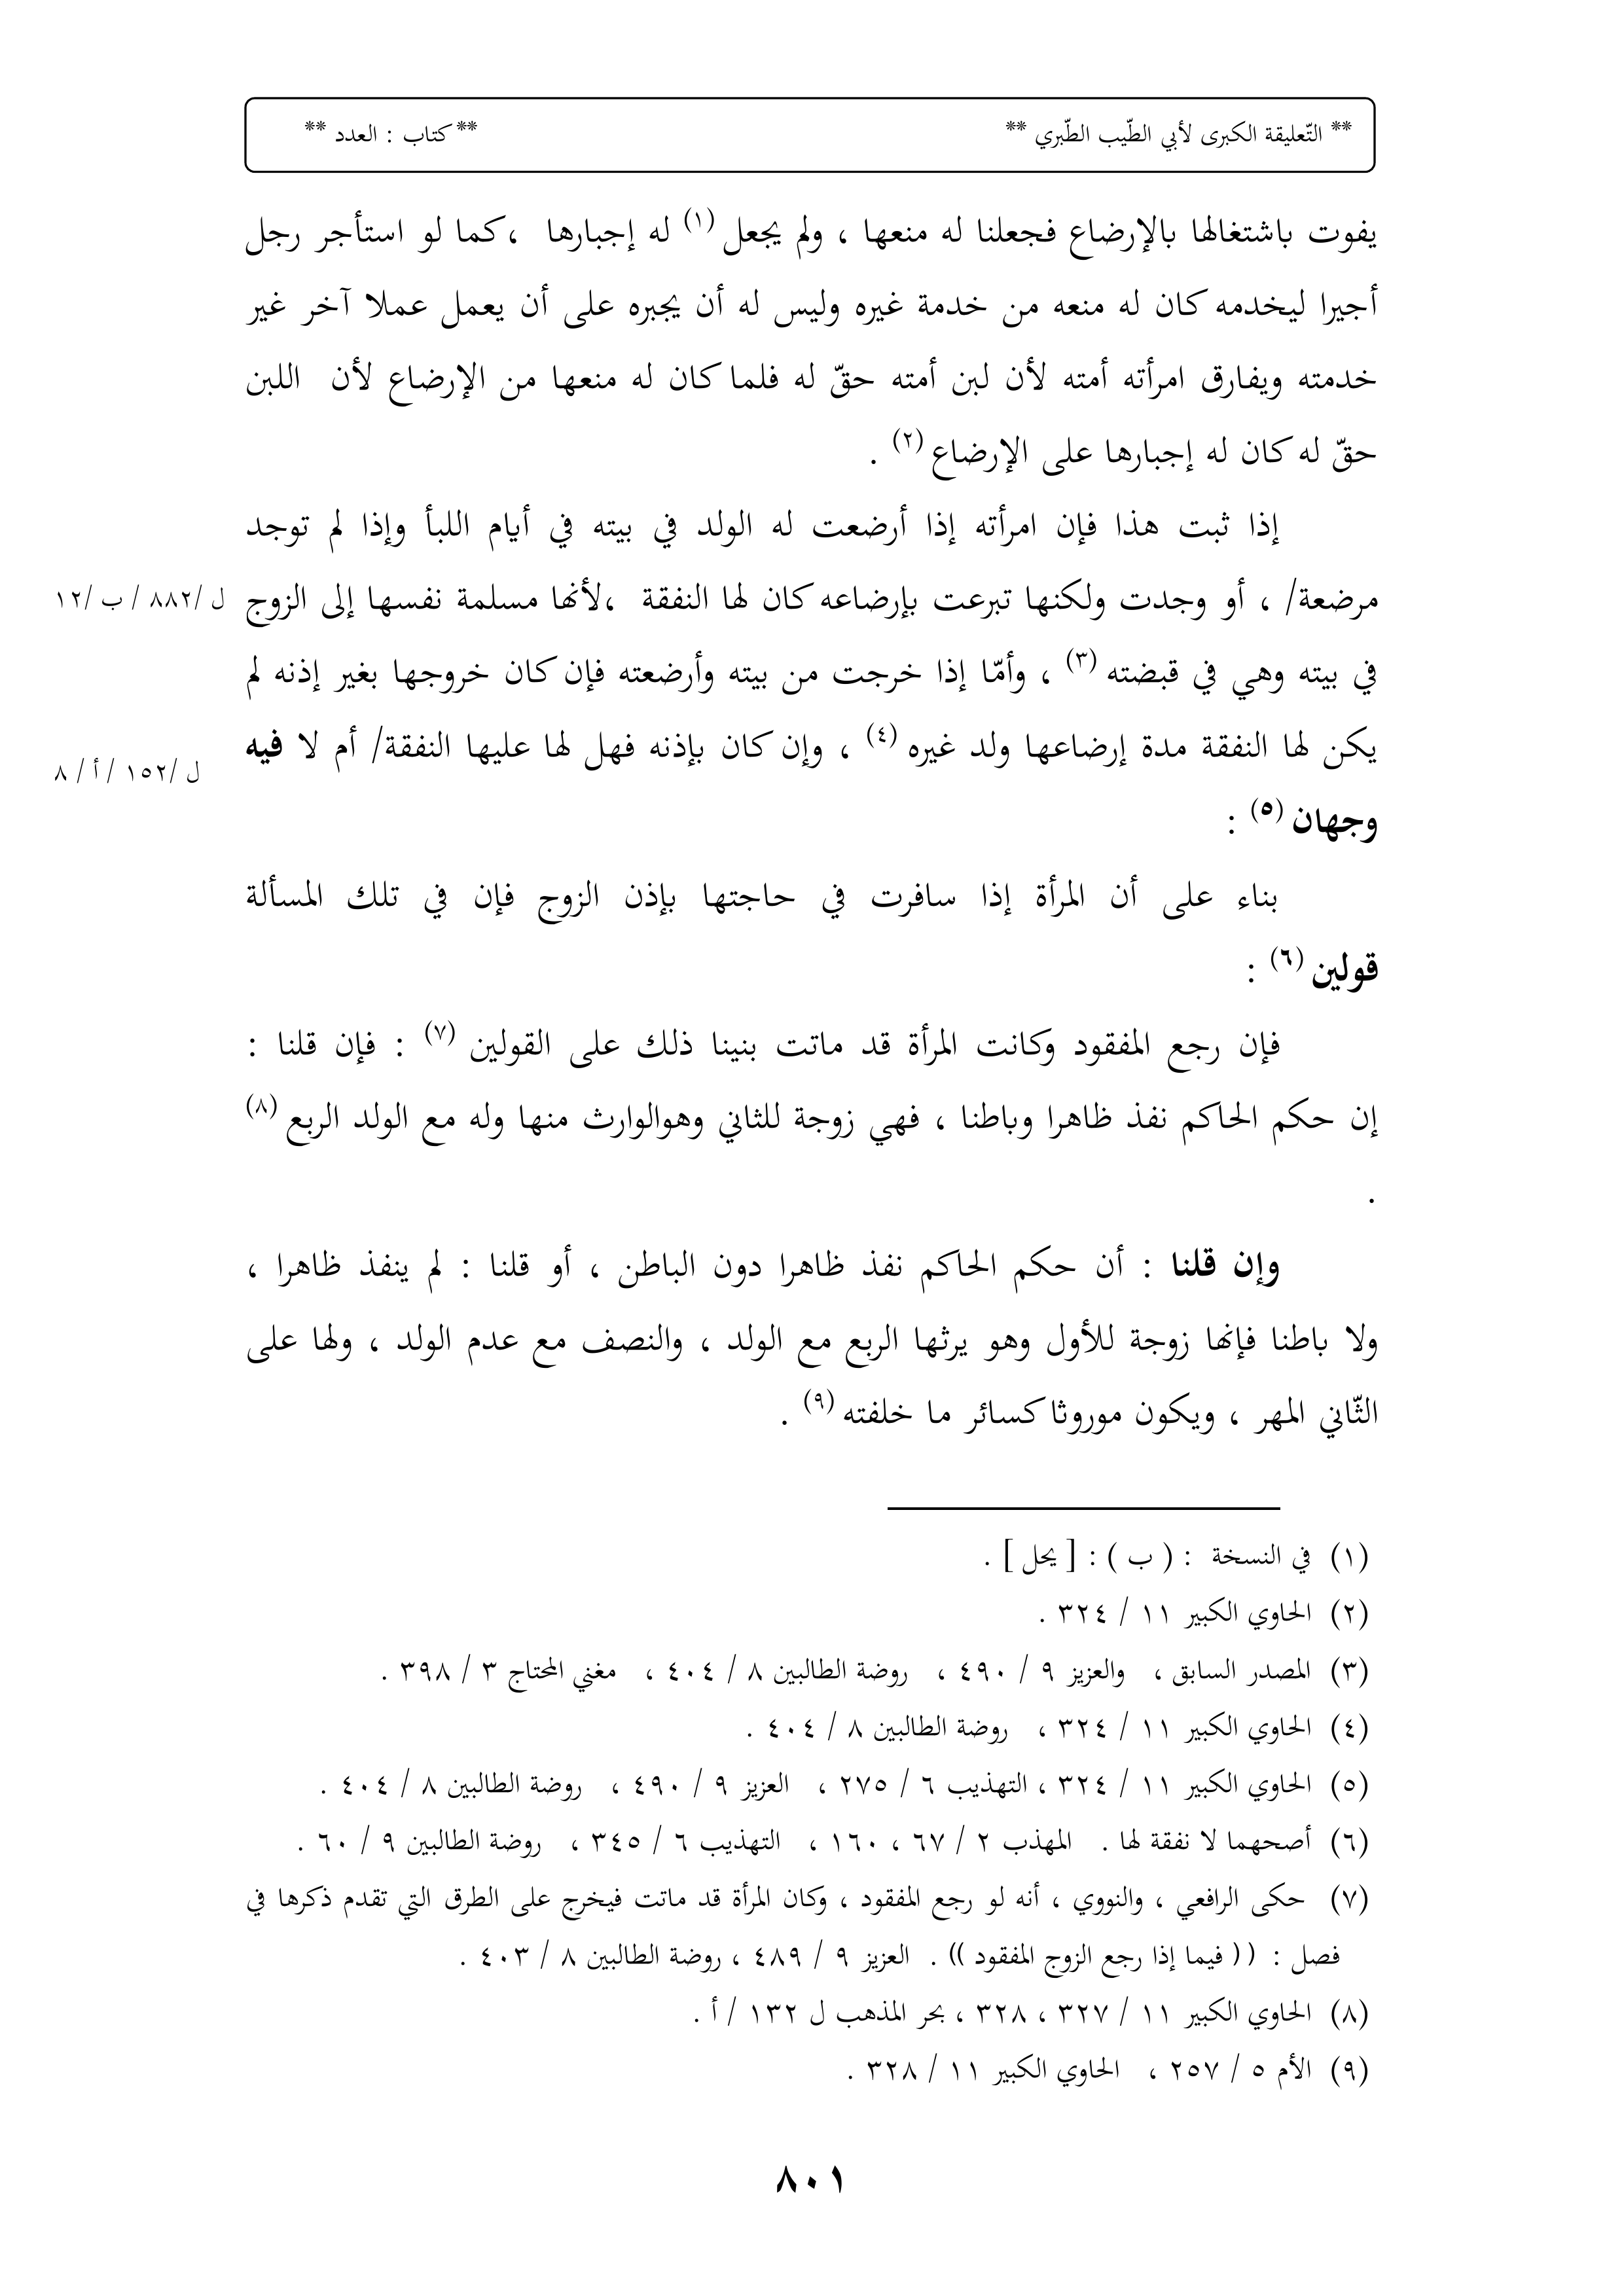 ** التّعليقة الكبرى لأبي الطّيب الطّبري ** ** كتاب : العدد **
يفوت باشتغالها بالإرضاع فجعلنا له منعها ، ولم يجعل (١) له إجبارها ،كما لو استأجر رجل
أجيرا ليخدمه كان له منعه من خدمة غيره وليس له أن يجبره على أن يعمل عملا آخر غير
خدمته ويفارق امرأته أمته لأن لبن أمته حقّ له فلما كان له منعها من الإرضاع لأن اللبن
حقّ له كان له إجبارها على الإرضاع (٢) .
إذا ثبت هذا فإن امرأته إذا أرضعت له الولد في بيته في أيام اللبأ وإذا لم توجد
مرضعة/ ، أو وجدت ولكنها تبرعت بإرضاعه كان لها النفقة ،لأنها مسلمة نفسها إلى الزوج
ل /٨٨٢ / ب /١٢
في بيته وهي في قبضته (٣) ، وأمّا إذا خرجت من بيته وأرضعته فإن كان خروجها بغير إذنه لم
يكن لها النفقة مدة إرضاعها ولد غيره (٤) ، وإن كان بإذنه فهل لها عليها النفقة/ أم لا فيه
ل /١٥٢ / أ / ٨
وجهان (٥) :
بناء على أن المرأة إذا سافرت في حاجتها بإذن الزوج فإن في تلك المسألة
قولين (٦) :
فإن رجع المفقود وكانت المرأة قد ماتت بنينا ذلك على القولين (٧) : فإن قلنا :
إن حكم الحاكم نفذ ظاهرا وباطنا ، فهي زوجة للثاني وهوالوارث منها وله مع الولد الربع (٨)
.
وإن قلنا : أن حكم الحاكم نفذ ظاهرا دون الباطن ، أو قلنا : لم ينفذ ظاهرا ،
ولا باطنا فإنها زوجة للأول وهو يرثها الربع مع الولد ، والنصف مع عدم الولد ، ولها على
الثّاني المهر ، ويكون موروثا كسائر ما خلفته (٩) .
(١) في النسخة : ( ب ) : [ يحل ] .
(٢) الحاوي الكبير ١١ / ٣٢٤ .
(٣) المصدر السابق ، والعزيز ٩ / ٤٩٠ ، روضة الطالبين ٨ / ٤٠٤ ، مغني المحتاج ٣ / ٣٩٨ .
(٤) الحاوي الكبير ١١ / ٣٢٤ ، روضة الطالبين ٨ / ٤٠٤ .
(٥) الحاوي الكبير ١١ / ٣٢٤ ، التهذيب ٦ / ٢٧٥ ، العزيز ٩ / ٤٩٠ ، روضة الطالبين ٨ / ٤٠٤ .
(٦) أصحهما لا نفقة لها . المهذب ٢ / ٦٧ ، ١٦٠ ، التهذيب ٦ / ٣٤٥ ، روضة الطالبين ٩ / ٦٠ .
(٧) حكى الرافعي ، والنووي ، أنه لو رجع المفقود ، وكان المرأة قد ماتت فيخرج على الطرق التي تقدم ذكرها في
فصل : (( فيما إذا رجع الزوج المفقود )) . العزيز ٩ / ٤٨٩ ، روضة الطالبين ٨ / ٤٠٣ .
(٨) الحاوي الكبير ١١ / ٣٢٧ ، ٣٢٨ ، بحر المذهب ل ١٣٢ / أ .
(٩) الأم ٥ / ٢٥٧ ، الحاوي الكبير ١١ / ٣٢٨ .
٨٠١